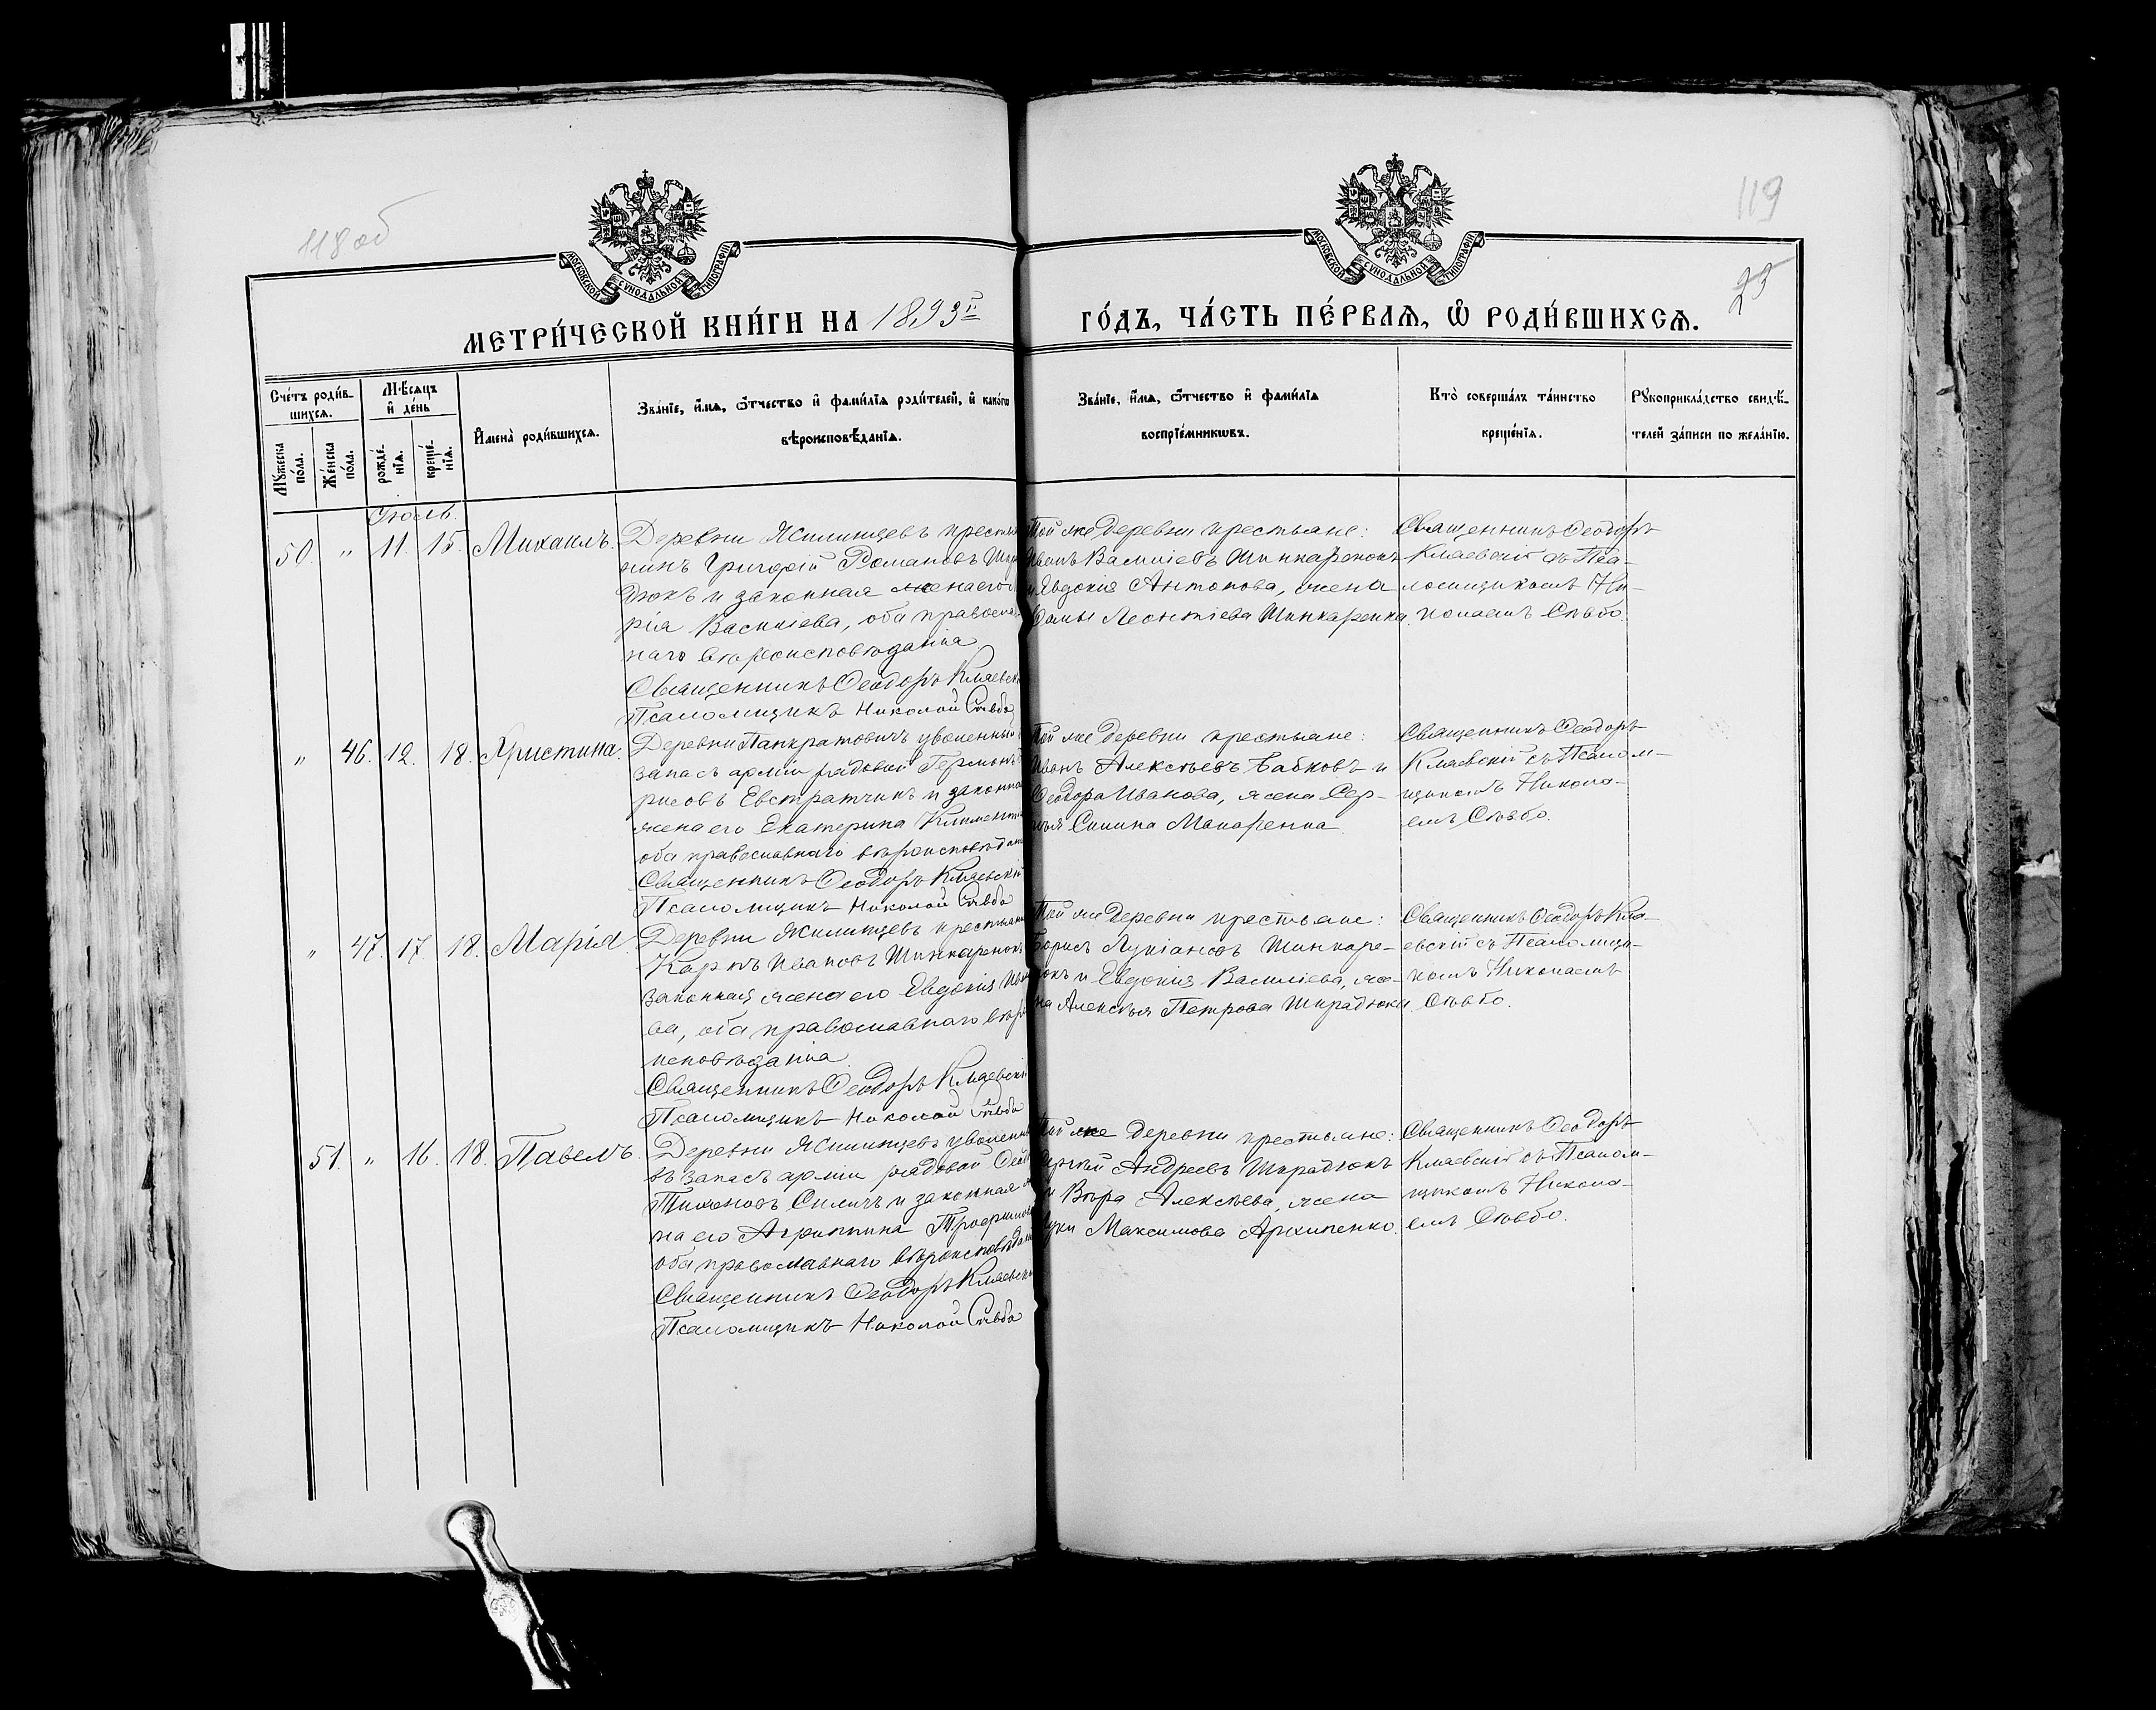 118 об
119
23
МОСКОВСКОЙ СѴНОДАЛЬНОЙ ТИПОГРАФІИ
МОСКОВСКОЙ СѴНОДАЛЬНОЙ ТИПОГРАФІИ
МЕТРИ́ЧЕСКОЙ КНИ́ГИ НА 1893й ГО́ДЪ, ЧА́СТЬ ПЕ́РВАѦ, Ѡ҆ РОДИ́ВШИХСѦ.
Сче́тъ роди́в-
шихсѧ.
Мꙋжеска по́ла.
Же́нска по́ла.
Мѣ́сѧцъ и҆ де́нь
рожде́-
нїѧ.
креще́-
нїѧ.
И҆мена̀ роди́вшихсѧ.
Зва́нїе, и҆́мѧ, ѻ҆́тчество и҆ фами́лїѧ роди́телей, и҆ како́гѡ
вѣроисповѣ́данїѧ.
Зва́нїе, и҆́мѧ, ѻ҆́тчество и҆ фами́лїѧ
воспрїе́мникѡвъ.
Кто̀ соверша́лъ та́инство
креще́нїѧ.
Рꙋкоприкла́дство свидѣ́-
телей за́писи по жела́нїю.
Іюль.
50. " 11. 15. Михаилъ.
Деревни Жилинцевъ крестья
нинъ Григорій Романовъ
дюкъ и законная жена его
рія Василіева, оба православ
наго вѣроисповѣданія
Священникъ Ѳеодоръ Клаевскій
Псаломщикъ Николай Сѣвбо
Той же деревни крестьяне:
Иванъ Василіевъ Шинкаренокъ
и Евдокія Антонова, жена
Ѳомы Леонтіева Шинкаренка.
Священникъ Ѳеодоръ
Клаевскій съ Пса-
ломщикомъ Ни-
колаемъ Сѣвбо.
" 46. 12. 18. Христина.
Деревни Панкратовичъ уволенный
запасъ арміи рядовой
рисовъ Евстратчикъ и законная
жена его Екатерина Климентіе
оба православнаго вѣроисповѣданія
Священникъ Ѳеодоръ Клаевскій
Псаломщикъ Николай Сѣвбо
Той же деревни крестьяне:
Иванъ Алексѣевъ Бабковъ и
Ѳеодора Иванова, жена Сер-
гѣя Макаренка.
Священникъ Ѳеодоръ
Клаевскій съ Псалом-
щикомъ Никола-
емъ Сѣвбо.
" 47. 17. 18. Марія
Деревни Жилинцевъ крестьянинъ
Карпъ Ивановъ Шинкаренокъ
законная жена его Евдокія
ва, оба православнаго вѣро
исповѣданія
Священникъ Ѳеодоръ Клаевскій
Псаломщикъ Николай Сѣвбо
Той же деревни крестьяне:
Борисъ Лукіановъ Шинкаре-
нокъ и Евдокія Василіева, же-
на Алексѣя Петрова Шкрадюка.
Священникъ Ѳеодоръ Кла-
евскій съ Псаломщи-
комъ Николаемъ
Сѣвбо.
51. " 16. 18. Павелъ.
Деревни Жилинцевъ уволенный
въ запасъ арміи рядовой
Тихоновъ Силичъ и законная
на его Агриппина Трофимова
оба православнаго вѣроисповѣданія
Священникъ Ѳеодоръ Клаевскій
Псаломщикъ Николай Сѣвбо
Той же деревни крестьяне:
Сергѣй Андреевъ Шкрадюкъ
и Вѣра Алексѣева, жена
Луки Максимова Архипенко.
Священникъ Ѳеодоръ
Клаевскій съ Псалом-
щикомъ Никола-
емъ Сѣвбо.